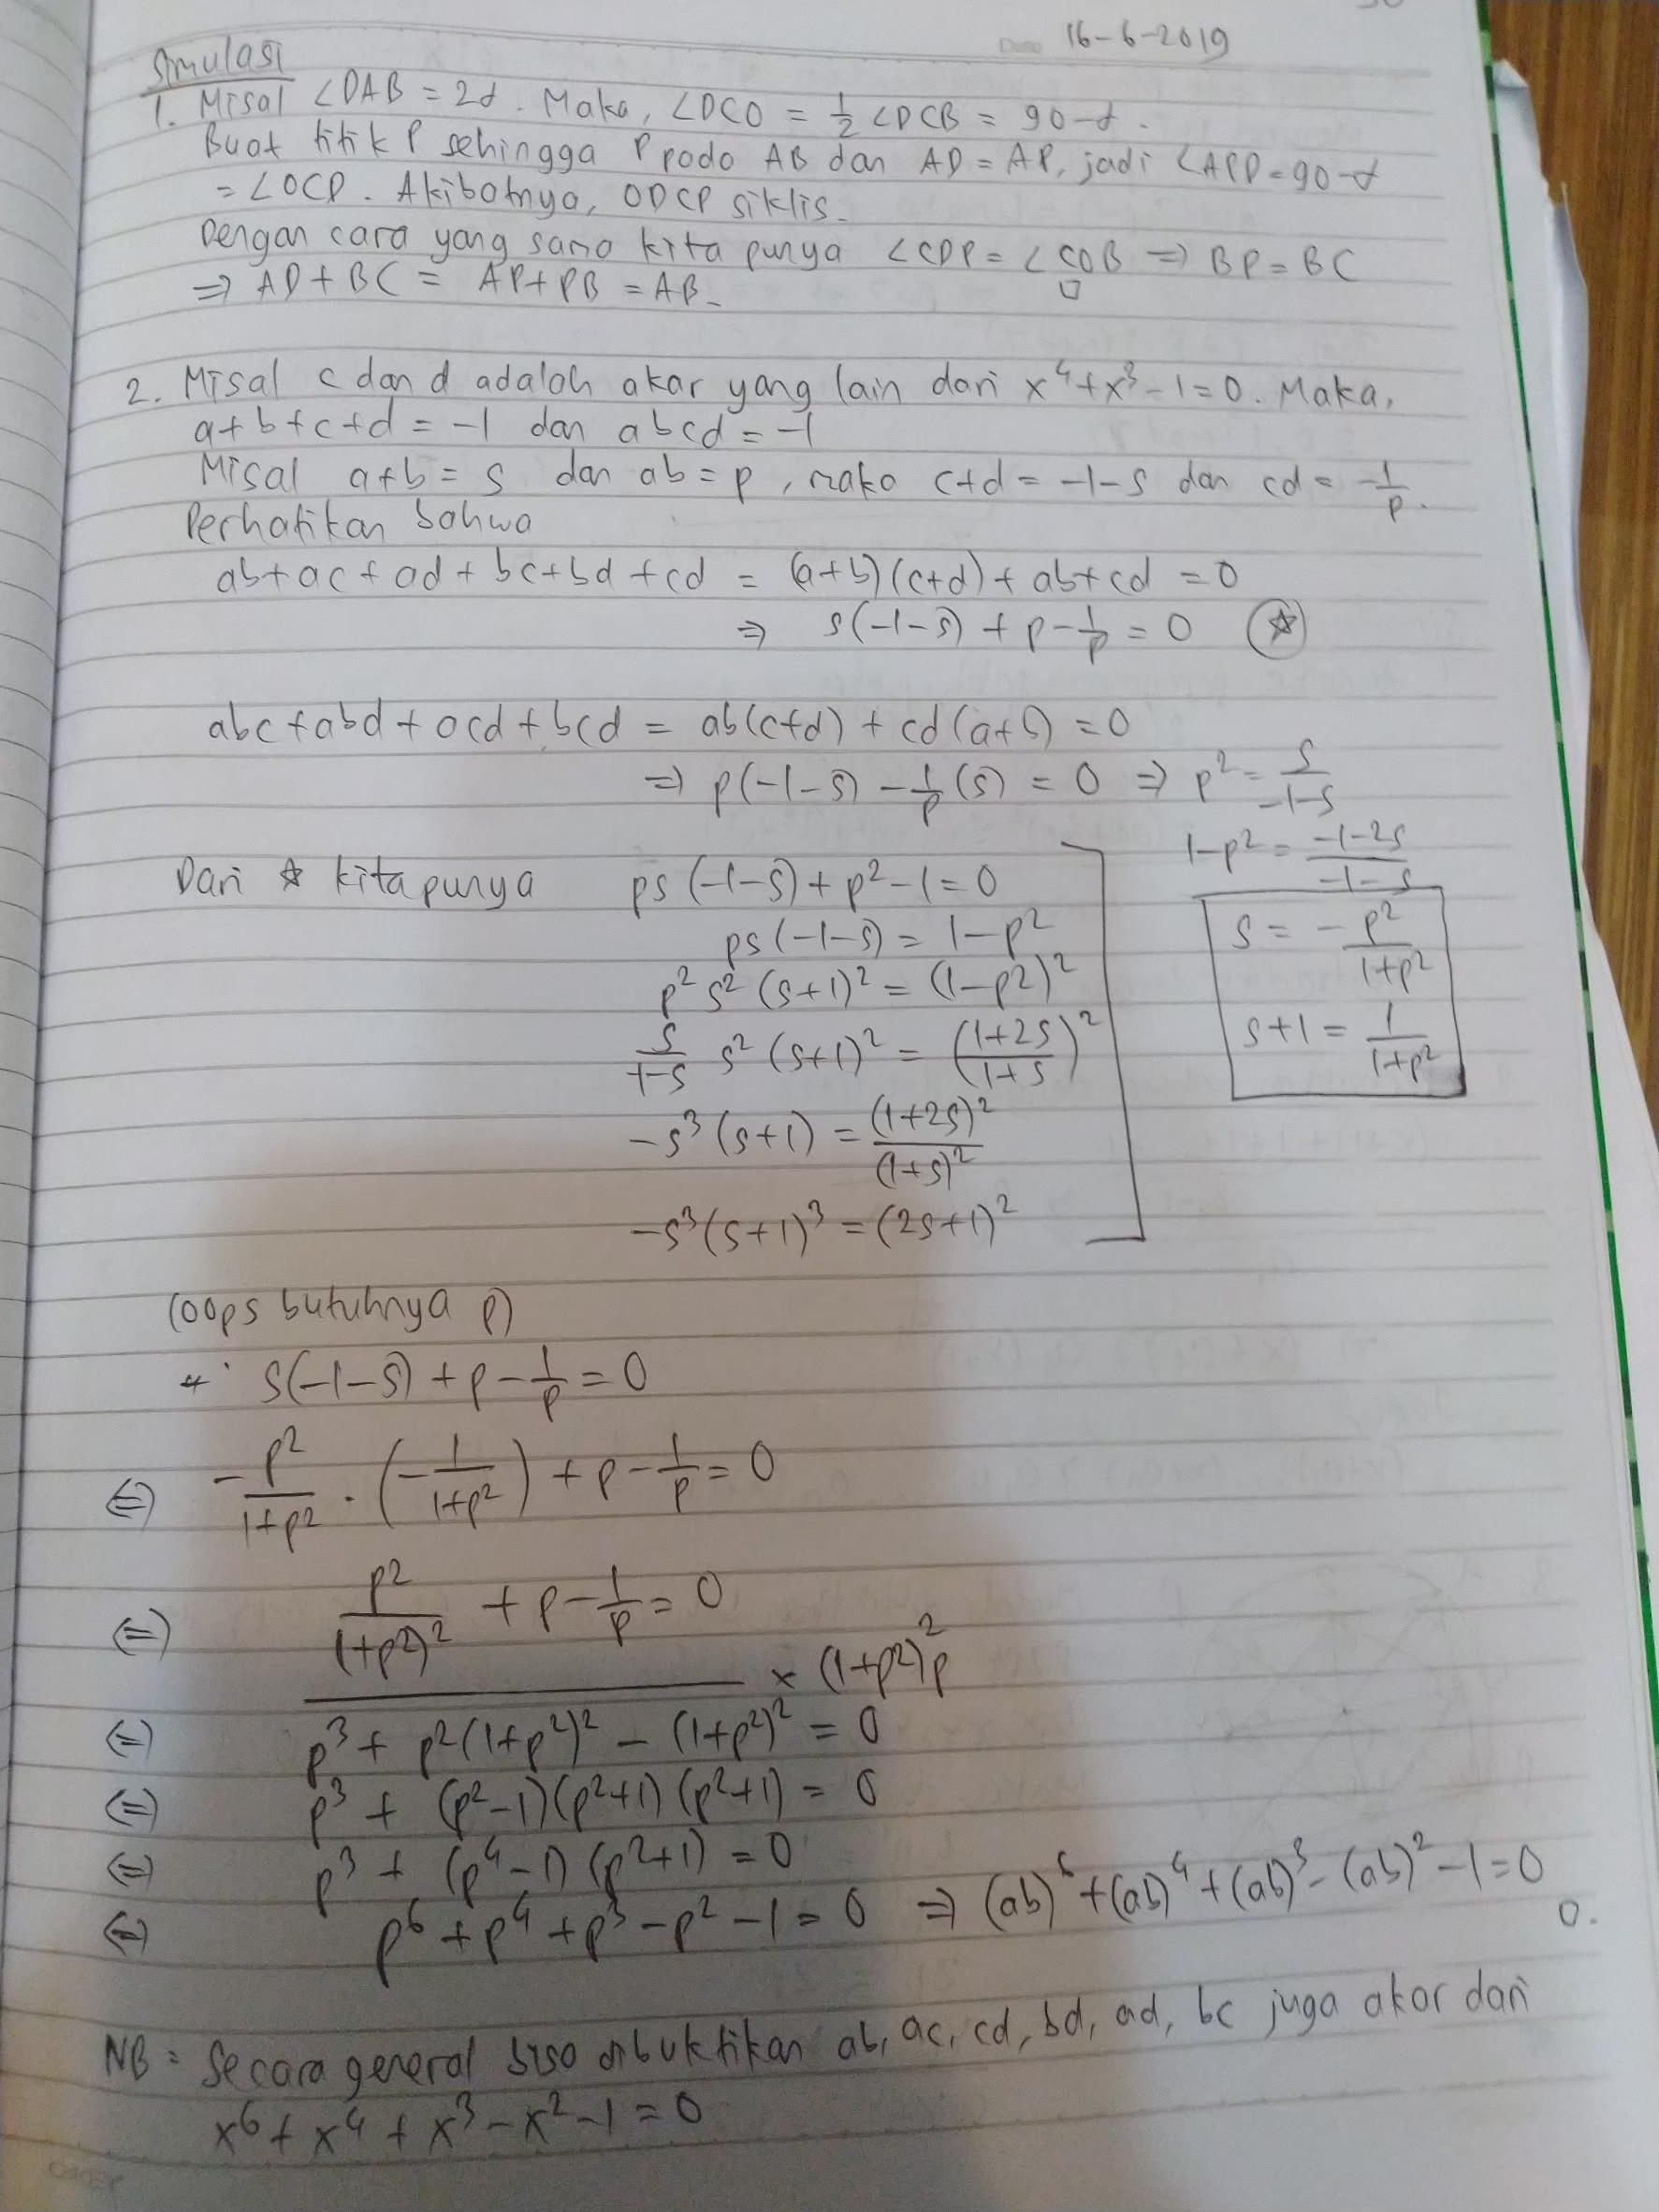 16-6-2019
Simulasi
1. Misal ∠DAB = 2α. Maka, ∠DCO = 1/2 ∠DCB = 90-α.
Buat titik P sehingga P pada AB dan AD = AP, jadi ∠APD = 90-α
= ∠OCD. Akibatnya, ODCP siklis.
Dengan cara yang sama kita punya ∠CDP = ∠COB ⇒ BP = BC
⇒ AD + BC = AP + PB = AB. □
2. Misal c dan d adalah akar yang lain dari x⁴+x³-1=0. Maka,
a+b+c+d = -1 dan abcd = -1
Misal a+b = s dan ab = p, maka c+d = -1-s dan cd = -1/p.
Perhatikan bahwa
ab+ac+ad+bc+bd+cd = (a+b)(c+d)+ab+cd = 0
⇒ s(-1-s) + p - 1/p = 0 ☆
abc+abd+acd+bcd = ab(c+d) + cd(a+b) = 0
⇒ p(-1-s) - 1/p (s) = 0 ⇒ p² = s/(-1-s)
1-p² = (-1-2s)/(-1-s)
Dari ☆ kita punya ps(-1-s)+p²-1=0
ps(-1-s) = 1-p²
s = - p²/(1+p²)
p² s² (s+1)² = (1-p²)²
s+1 = 1/(1+p²)
s/(-1-s) s² (s+1)² = ((1+2s)/(1+s))²
-s³(s+1) = (1+2s)²/(1+s)²
-s³(s+1)³ = (2s+1)²
(oops butuhnya p)
s(-1-s) + p - 1/p = 0
⇔ -p²/(1+p²) · (-1/(1+p²)) + p - 1/p = 0
⇔ p²/(1+p²)² + p - 1/p = 0
× (1+p²)²p
⇔ p³ + p²(1+p²)² - (1+p²)² = 0
⇔ p³ + (p²-1)(p²+1)(p²+1) = 0
⇔ p³ + (p⁴-1)(p²+1) = 0
⇔ p⁶+p⁴+p³-p²-1=0 ⇒ (ab)⁶+(ab)⁴+(ab)³-(ab)²-1=0
□.
NB = Secara general bisa dibuktikan ab, ac, cd, bd, ad, bc juga akar dari
x⁶+x⁴+x³-x²-1=0